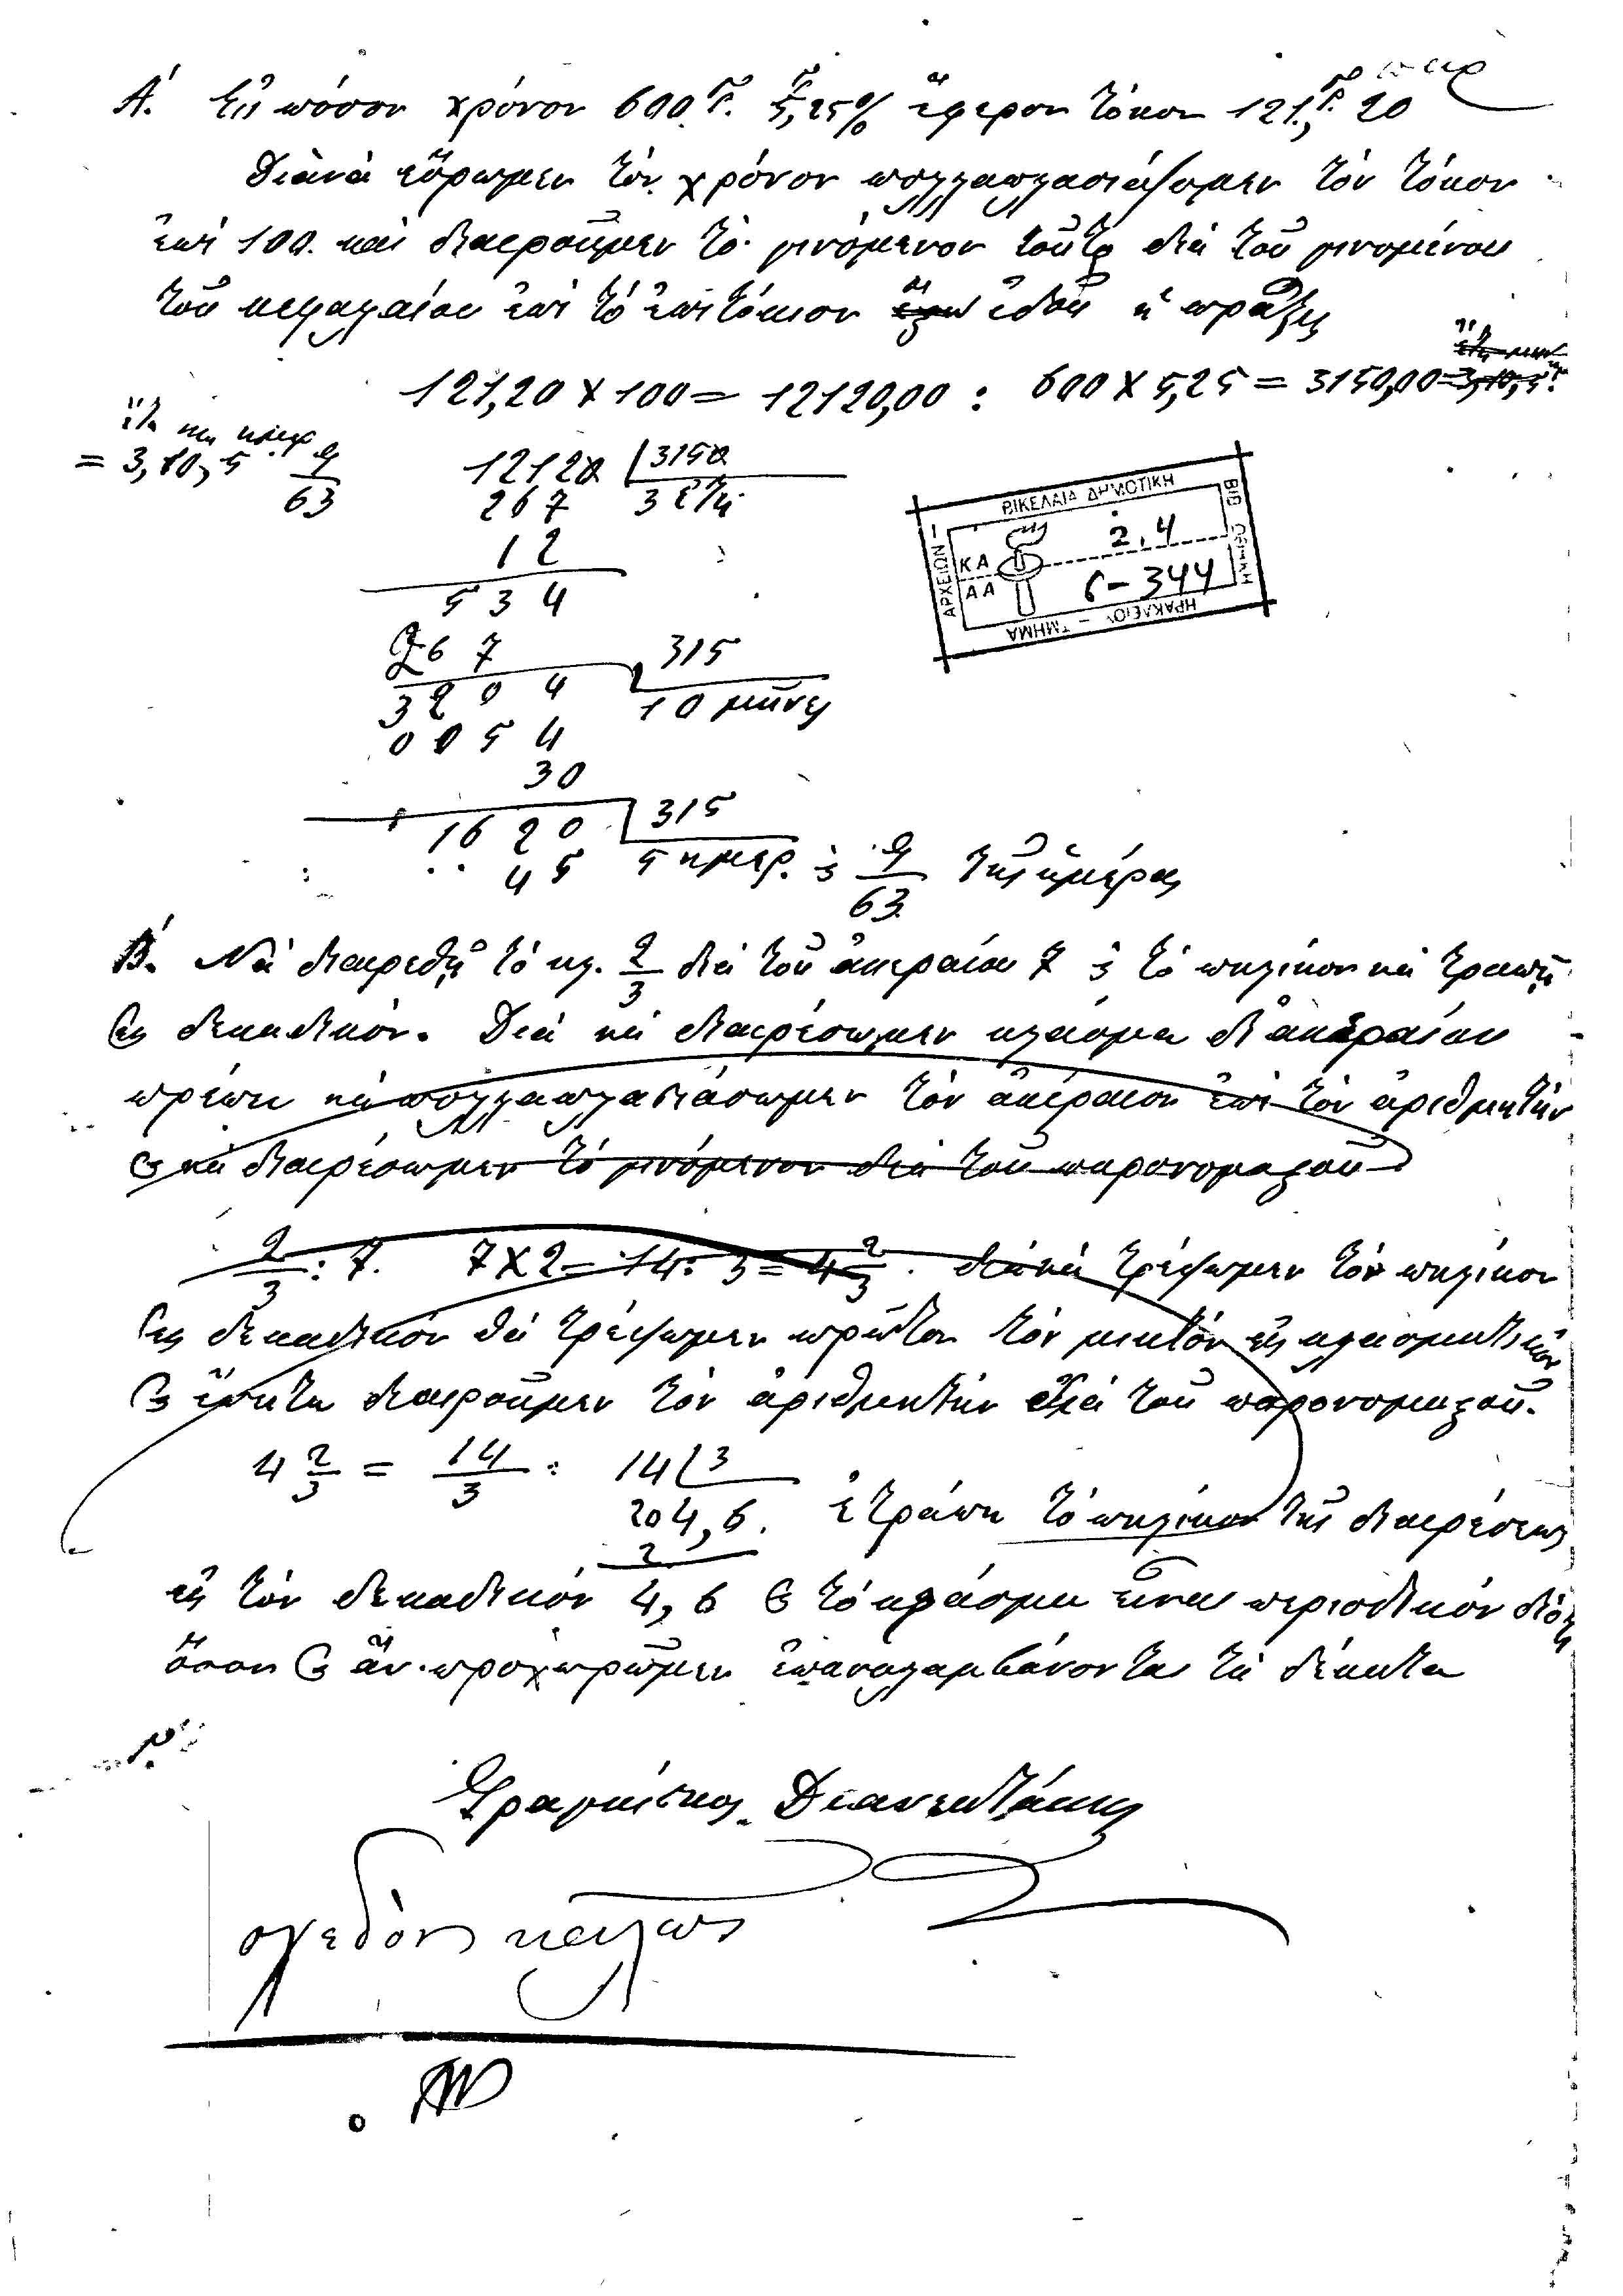 Α΄. Εἰς πόσον χρόνον 600 γρ. 5,25% ἔφερον τόκον 121, γρ. 20
Διὰ νὰ εὕρωμεν τὸν χρόνον πολλαπλασιάζομεν τὸν τόκον
ἐπὶ 100. καὶ διαιροῦμεν τὸ γινόμενον τοῦτο διὰ τοῦ γινομένου
τοῦ κεφαλαίου ἐπὶ τὸ ἐπιτόκιον ἰδοὺ ἡ πρᾶξις
121,20 × 100 = 12120,00 : 600 × 5,25 = 3150,00 = 3,10,5
ἔτη μην ημερ
= 3,10,5 9/63
12120 | 3150
267 3 ἔτη
12
534
267
3204 | 315
0054 10 μῆνες
30
1620 | 315
45 5 ημερ. ϗ 9/63 τῆς ἡμέρας
Β΄. Νὰ διαιρεθῇ τὸ κλ. 2/3 διὰ τοῦ ἀκεραίου 7 ϗ τὸ πηλίκον νὰ τραπῇ
εἰς δεκαδικόν. Διὰ νὰ διαιρέσωμεν κλάσμα δι' ἀκεραίου
πρέπει νὰ πολλαπλασιάσωμεν τὸν ἀκέραιον ἐπὶ τὸν ἀριθμητὴν
ϗ νὰ διαιρέσωμεν τὸ γινόμενον διὰ τοῦ παρονομαστοῦ
2/3 : 7. 7 × 2 = 14 : 3 = 4 2/3. διὰ νὰ τρέψωμεν τὸν πηλίκον
εἰς δεκαδικόν θὰ τρέψωμεν πρῶτον τὸν μικτὸν εἰς κλασματικὸν
ϗ ἔπειτα διαιροῦμεν τὸν ἀριθμητὴν διὰ τοῦ παρονομαστοῦ.
4 2/3 = 14/3 : 14 | 3
20 4,6. ἐτράπη τὸ πηλίκον τῆς διαιρέσεως
2
εἰς τὸν δεκαδικόν 4,6 ϗ τὸ κλάσμα εἶναι περιοδικόν διότι
ὅσον ϗ ἂν προχωρῶμεν ἐπαναλαμβάνονται τὰ δέκατα
Φραγκίσκος Διαλεκτάκης
σχεδὸν καλῶς
ΒΙΚΕΛΑΙΑ ΔΗΜΟΤΙΚΗ
ΒΙΒΛΙΟΘΗΚΗ
ΗΡΑΚΛΕΙΟΥ – ΤΜΗΜΑ
ΑΡΧΕΙΩΝ
ΚΑ 2.4
ΑΑ 6-344